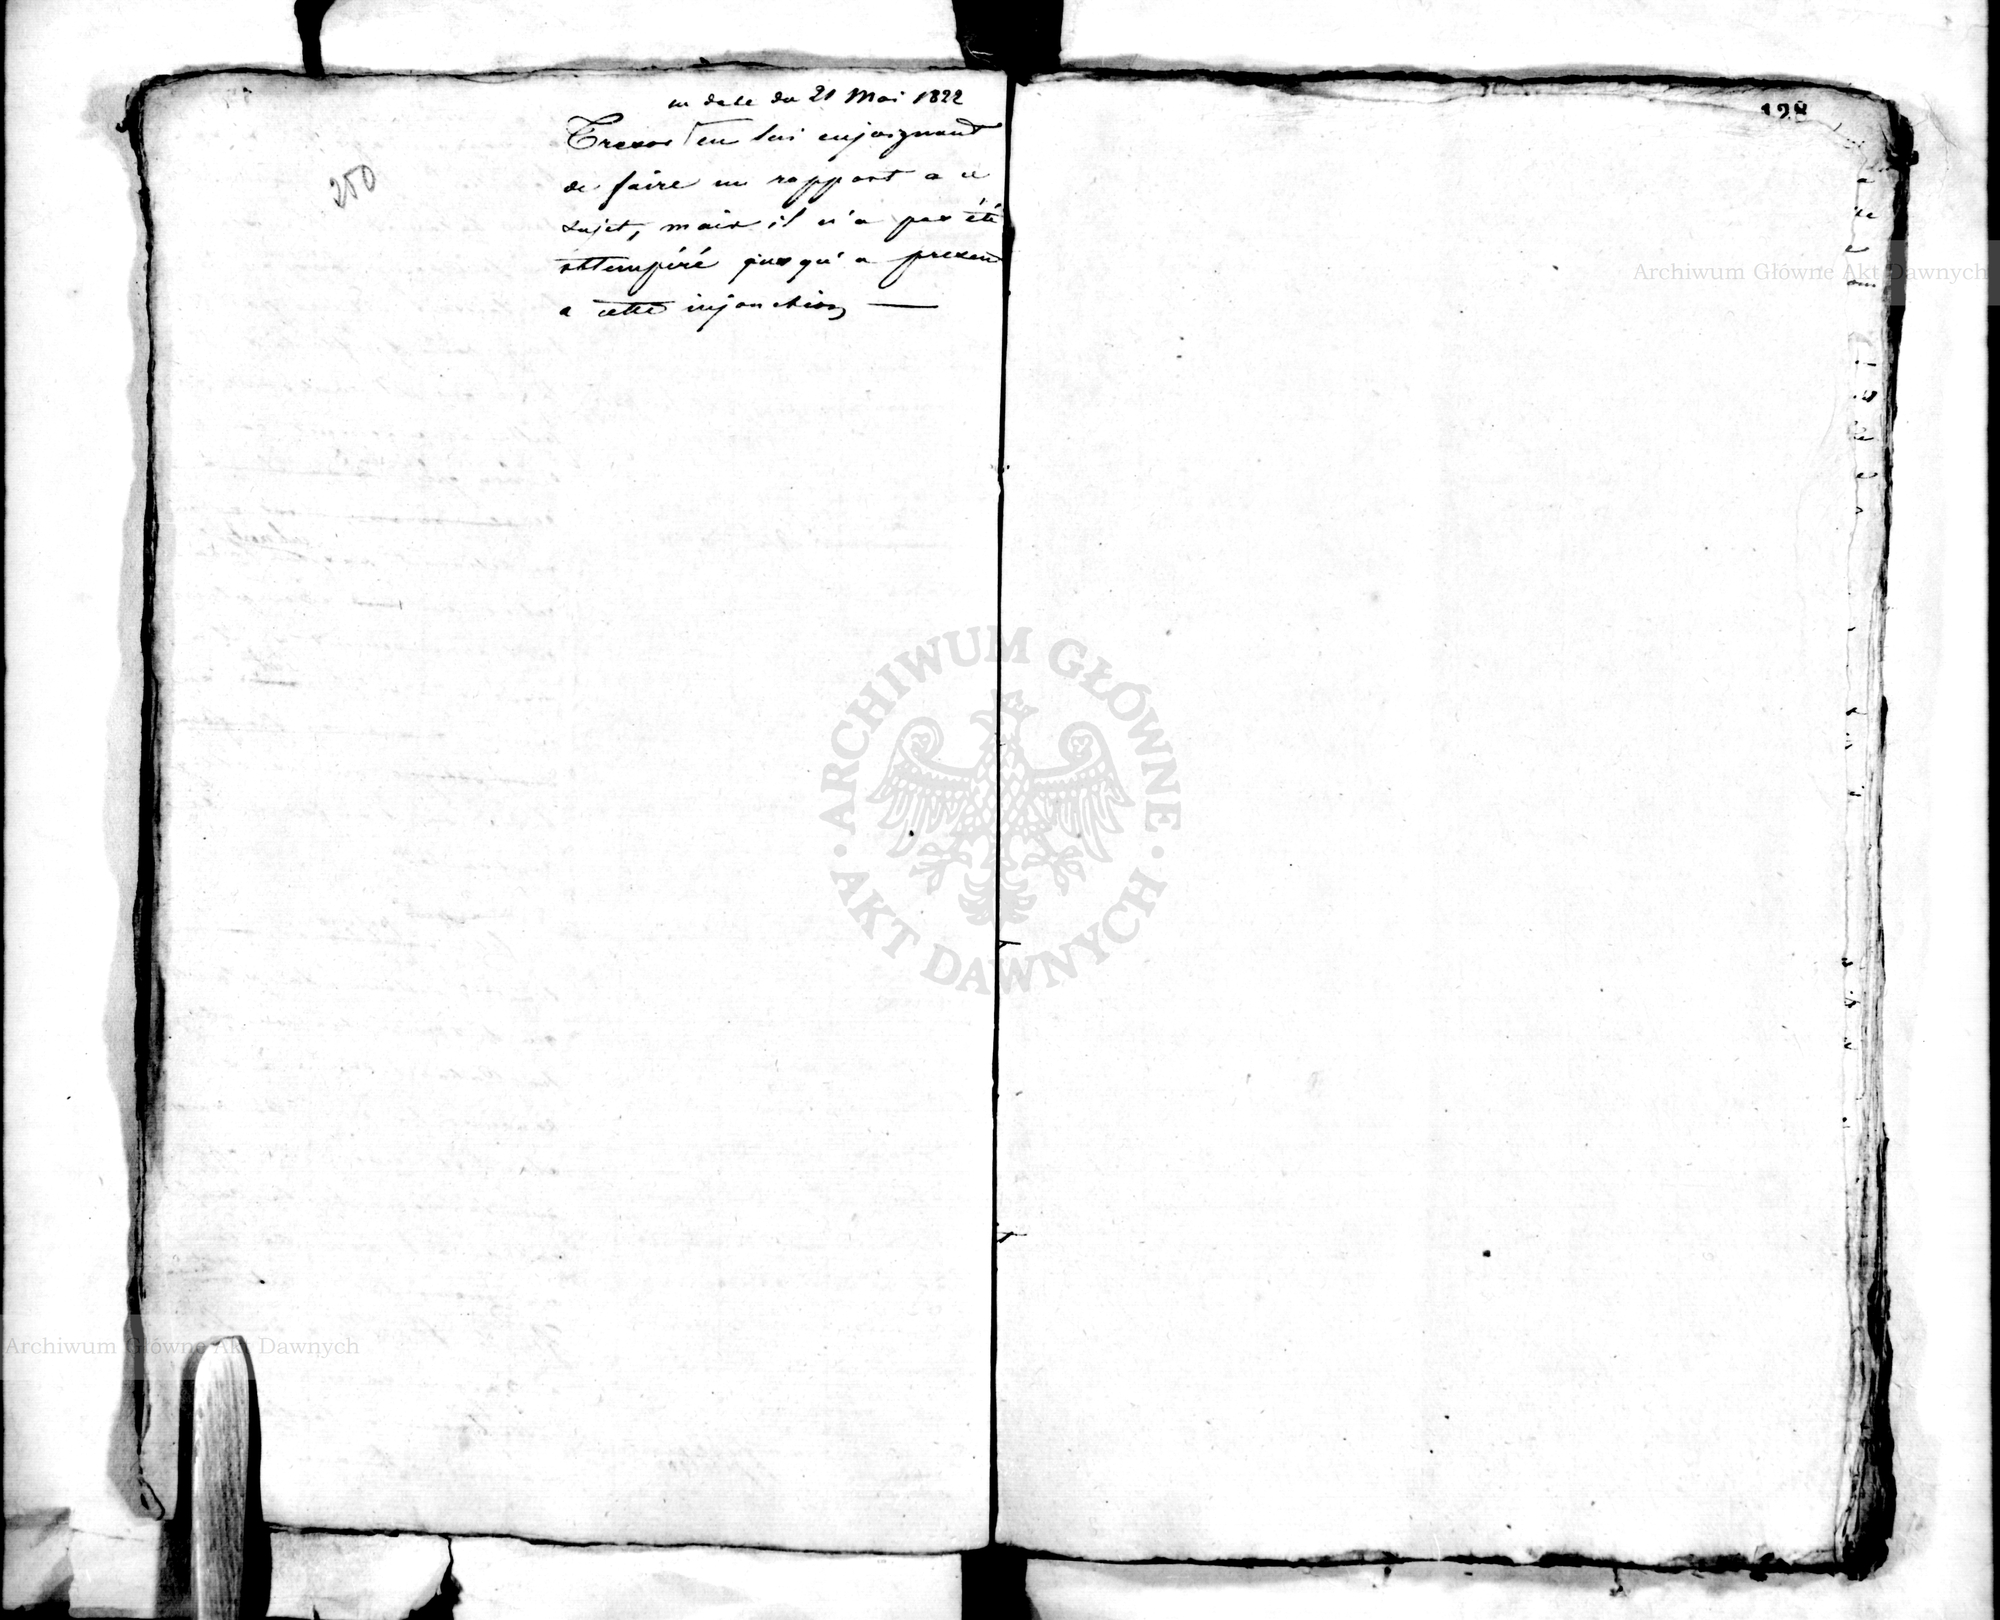 250
en date du 21 Mai 1822
Tresor en lui enjoignant
de faire un rapport a ce
sujet, mais il n'a pas été
obtempéré jusqu'a presen
a cette injonction —
128
Archiwum Główne Akt Dawnych
ARCHIWUM GŁÓWNE
AKT DAWNYCH
Archiwum Główne Akt Dawnych